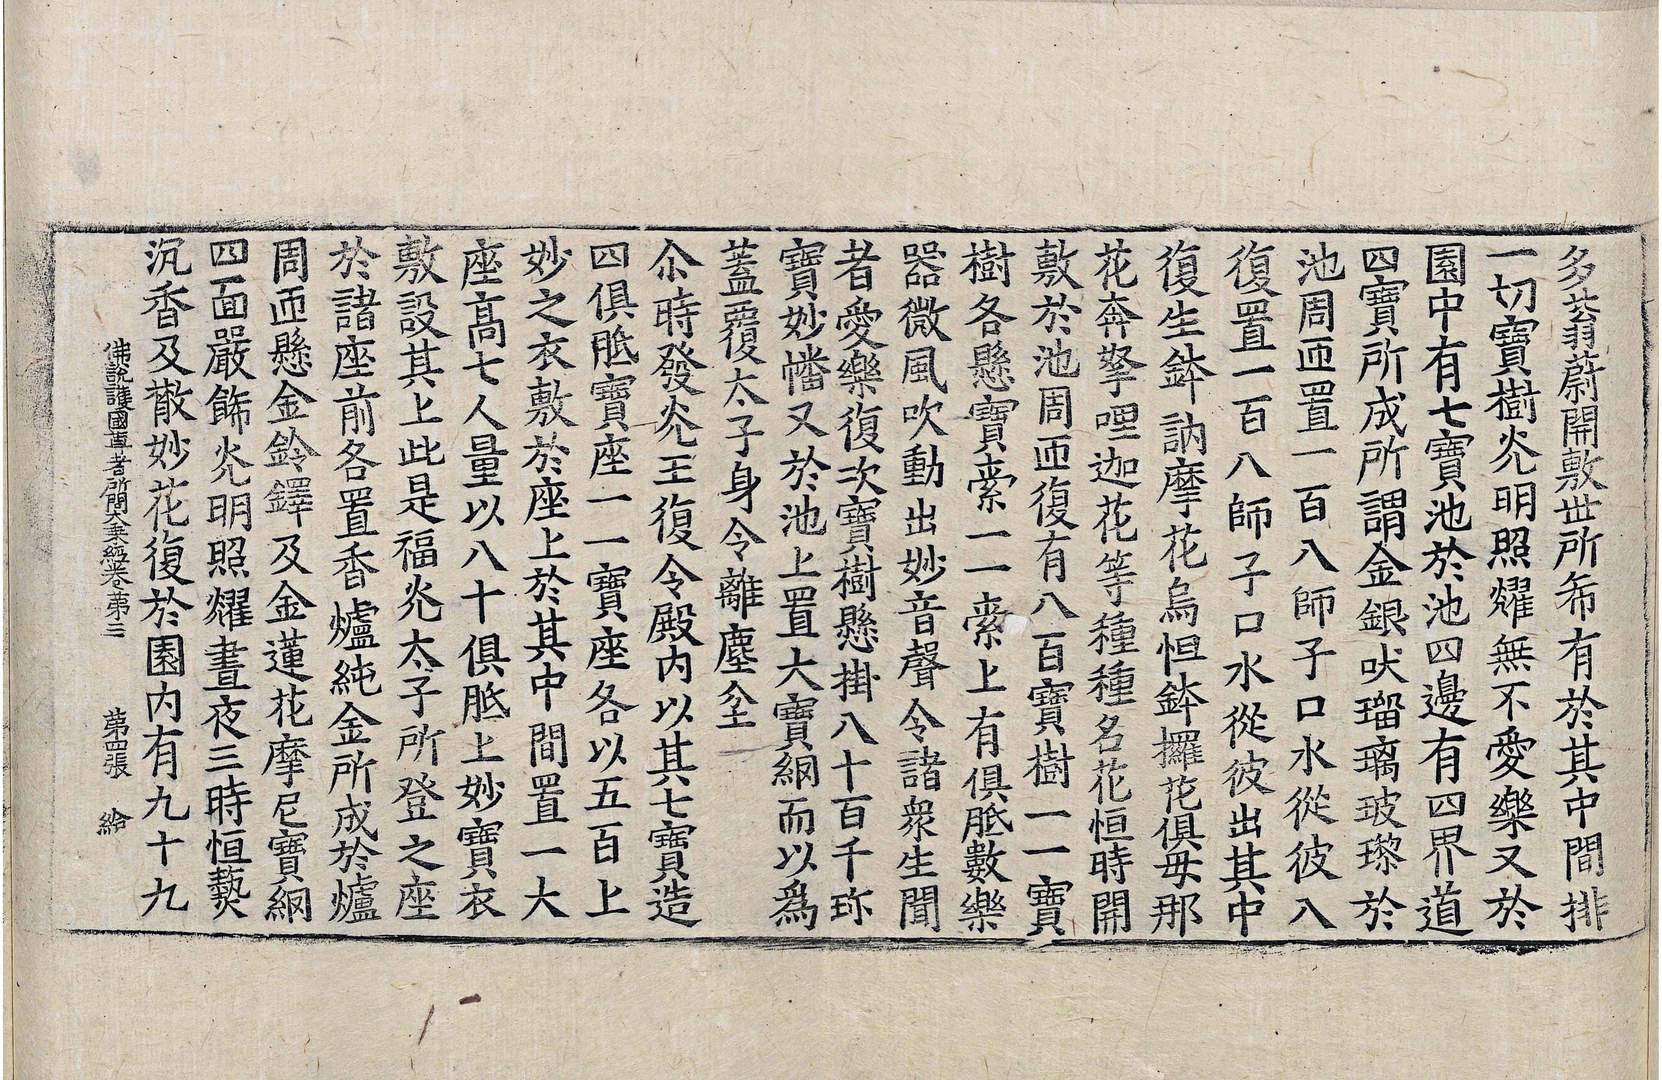 多蓊蔚開敷世所希有於其中間排
一切寶樹灮明照耀無不愛樂又於
園中有七寶池於池四邊有四界道
四寶所成所謂金銀吠瑠璃玻瓈於
池周匝置一百八師子口水從彼八
復置一百八師子口水從彼出其中
復生鉢訥摩花烏怛鉢攞花俱毋那
花奔拏哩迦花等種種名花恒時開
敷於池周匝復有八百寶樹一一寶
樹各懸寶索一一索上有俱胝數樂
器微風吹動出妙音聲令諸衆生聞
者愛樂復次寶樹懸掛八十百千珎
寶妙幡又於池上置大寶網而以爲
蓋覆太子身令離塵坌
尒時發灮王復令殿内以其七寶造
四俱胝寶座一一寶座各以五百上
妙之衣敷於座上於其中間置一大
座高七人量以八十俱胝上妙寶衣
敷設其上此是福灮太子所登之座
於諸座前各置香爐純金所成於爐
周匝懸金鈴鐸及金蓮花摩尼寶網
四面嚴飾灮明照耀晝夜三時恒爇
沉香及散妙花復於園内有九十九
佛說護國尊者所問大乘經卷第三 第四張 給